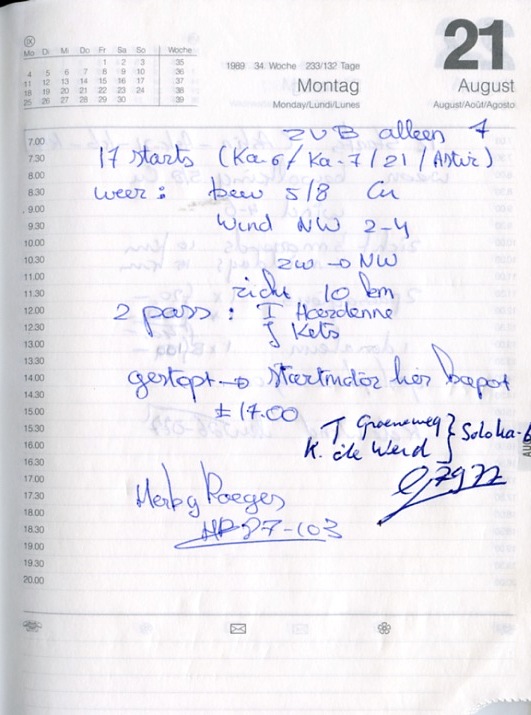 Mo Di Mi Do Fr Sa So Woche
1 2 3 35
4 5 6 7 8 9 10 36
11 12 13 14 15 16 17 37
18 19 20 21 22 23 24 38
25 26 27 28 29 30 39
1989 34. Woche 233/132 Tage
Montag
Monday/Lundi/Lunes
21
August
August/Août/Agosto
7.00
7.30
8.00
8.30
9.00
9.30
10.00
10.30
11.00
11.30
12.00
12.30
13.00
13.30
14.00
14.30
15.00
15.30
16.00
16.30
17.00
17.30
18.00
18.30
19.00
19.30
20.00
ZVB alleen 7
17 starts (Ka-6/Ka-7/21/Astir)
weer: bew 5/8 Cu
Wind NW 2-4
zw → NW
zicht 10 km
2 pass: I
J Kets
gestopt → startmotor lier kapot
± 17.00
T Groeneweg } Solo Ka-6
K. de Werd